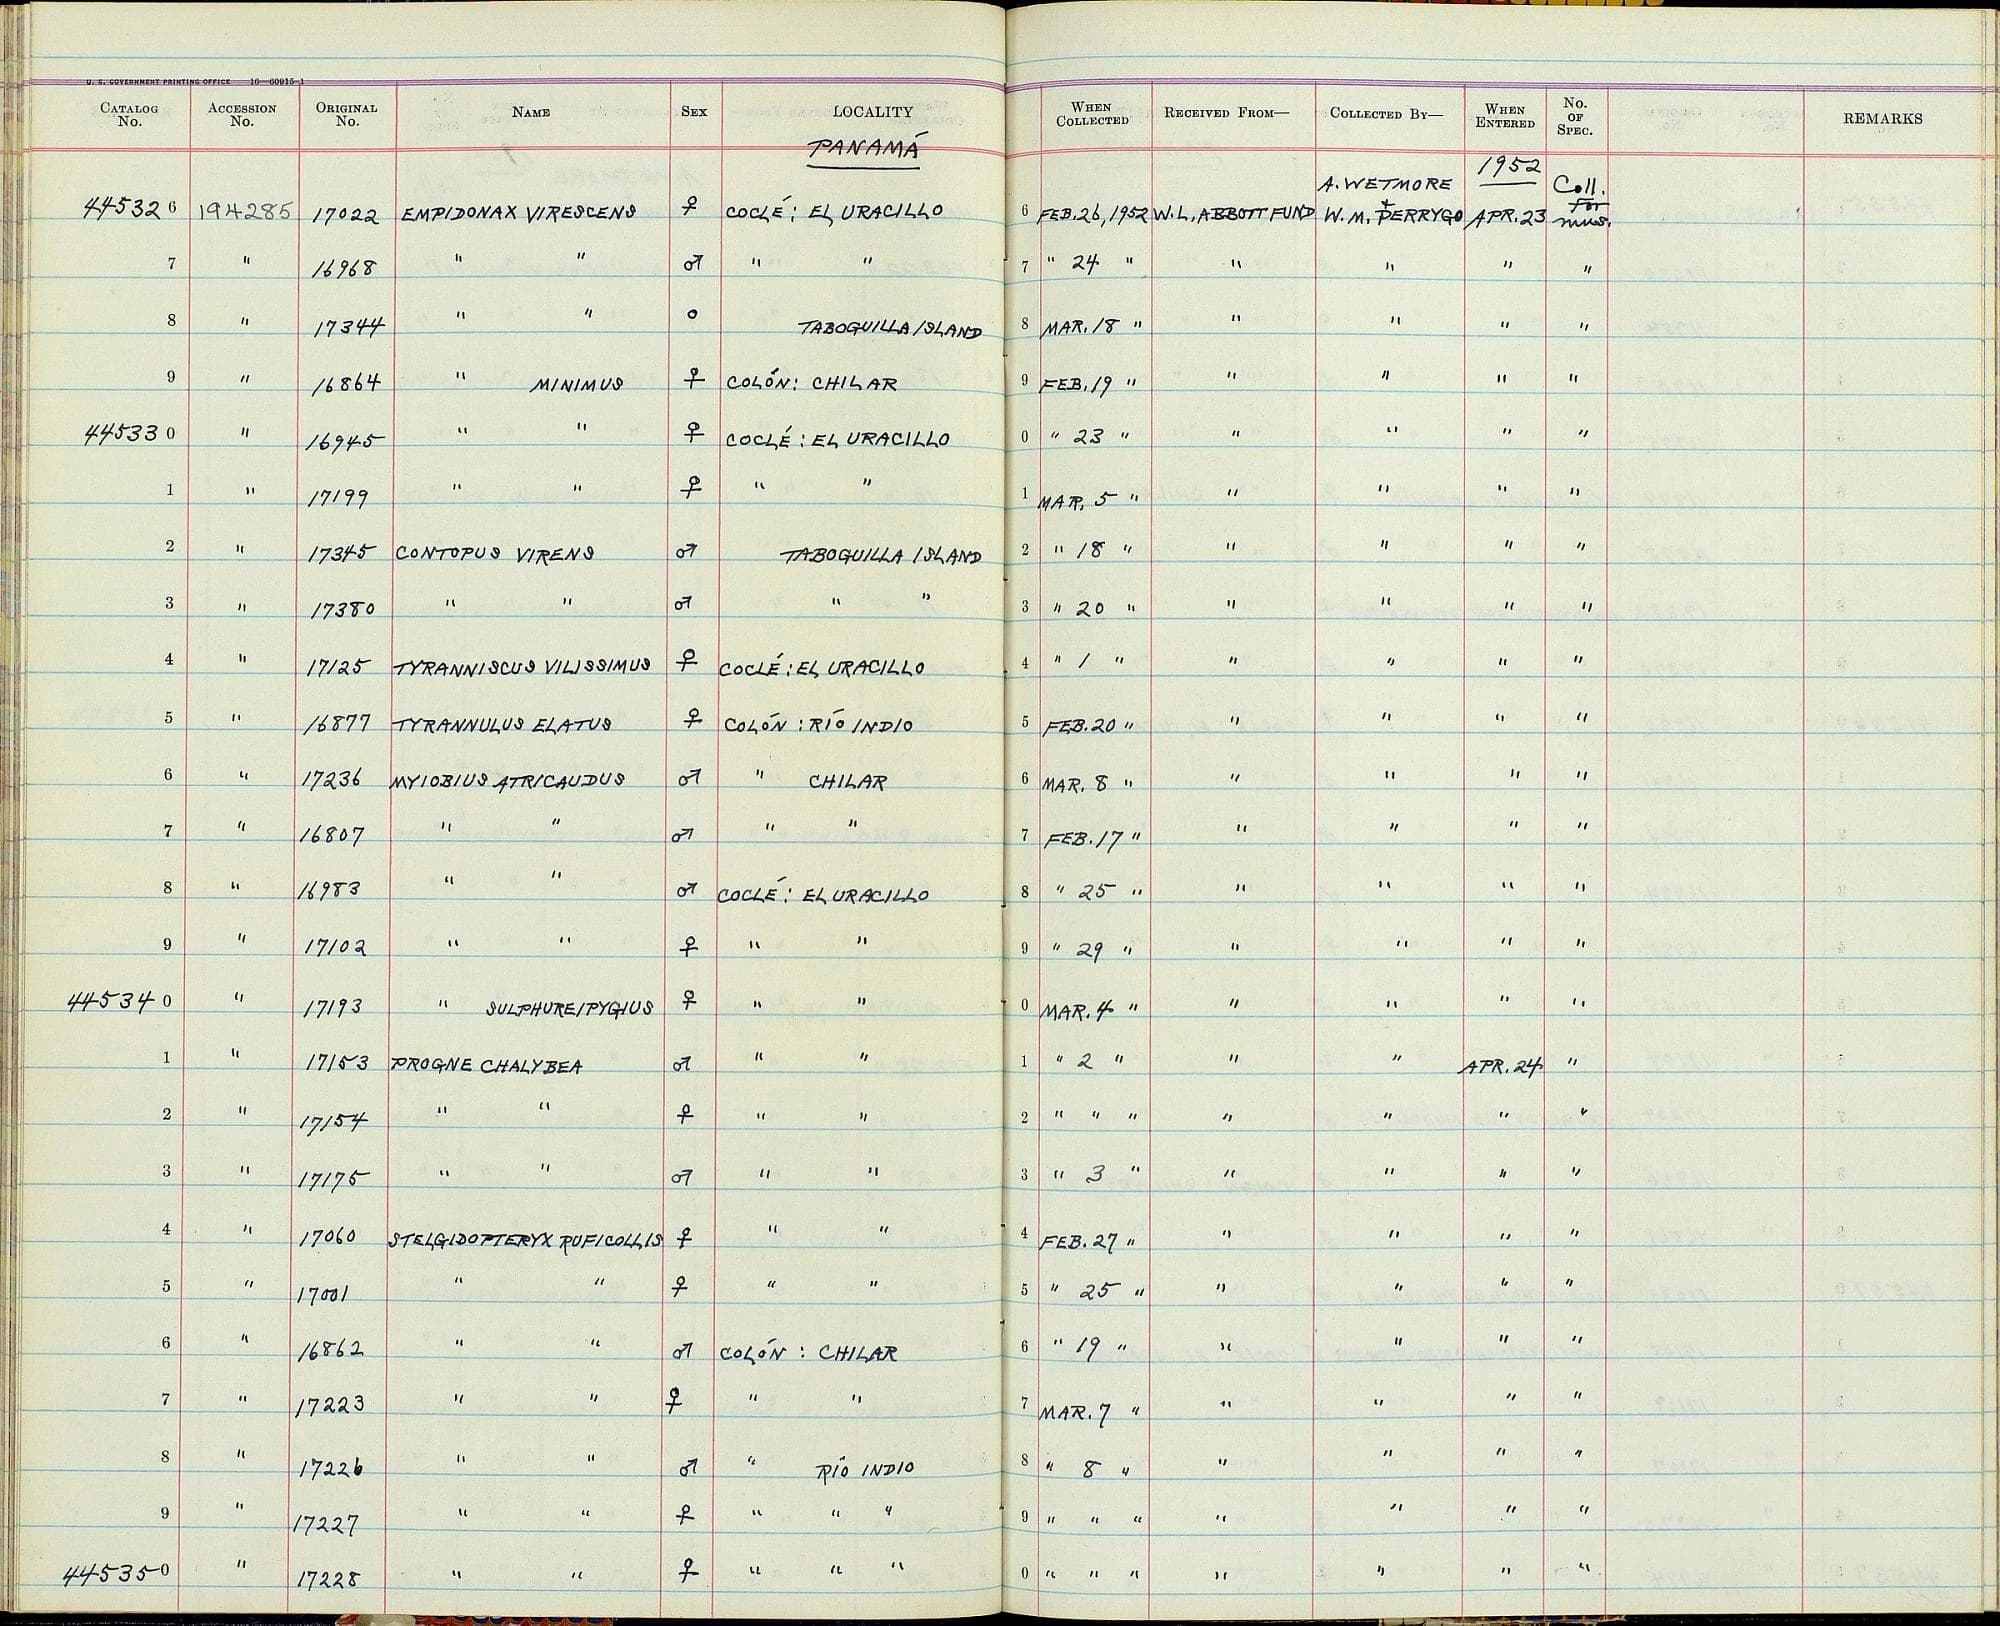 U. S. GOVERNMENT PRINTING OFFICE 16—60915-1
CATALOG No. ACCESSION No. ORIGINAL No. NAME SEX LOCALITY WHEN COLLECTED RECEIVED FROM— COLLECTED BY— WHEN ENTERED No. OF SPEC. REMARKS
PANAMÁ 1952
A. WETMORE Coll.
445326 194285 17022 EMPIDONAX VIRESCENS ♀ COCLÉ: EL URACILLO 6 FEB. 26, 1952 W. L. ABBOTT FUND + W. M. PERRYGO APR. 23 for mus.
7 " 16968 " " ♂ " " 7 " 24 " " " " "
8 " 17344 " " o TABOGUILLA ISLAND 8 MAR. 18 " " " " "
9 " 16864 " MINIMUS ♀ COLÓN: CHILAR 9 FEB. 19 " " " " "
445330 " 16945 " " ♀ COCLÉ: EL URACILLO 0 " 23 " " " " "
1 " 17199 " " ♀ " " 1 MAR. 5 " " " " "
2 " 17345 CONTOPUS VIRENS ♂ TABOGUILLA ISLAND 2 " 18 " " " " "
3 " 17380 " " ♂ " " 3 " 20 " " " " "
4 " 17125 TYRANNISCUS VILISSIMUS ♀ COCLÉ: EL URACILLO 4 " 1 " " " " "
5 " 16877 TYRANNULUS ELATUS ♀ COLÓN: RÍO INDIO 5 FEB. 20 " " " " "
6 " 17236 MYIOBIUS ATRICAUDUS ♂ " CHILAR 6 MAR. 8 " " " " "
7 " 16807 " " ♂ " " 7 FEB. 17 " " " " "
8 " 16983 " " ♂ COCLÉ: EL URACILLO 8 " 25 " " " " "
9 " 17102 " " ♀ " " 9 " 29 " " " " "
445340 " 17193 " SULPHUREIPYGIUS ♀ " " 0 MAR. 4 " " " " "
1 " 17153 PROGNE CHALYBEA ♂ " " 1 " 2 " " " APR. 24 "
2 " 17154 " " ♀ " " 2 " " " " " " "
3 " 17175 " " ♂ " " 3 " 3 " " " " "
4 " 17060 STELGIDOPTERYX RUFICOLLIS ♀ " " 4 FEB. 27 " " " " "
5 " 17001 " " ♀ " " 5 " 25 " " " " "
6 " 16862 " " ♂ COLÓN: CHILAR 6 " 19 " " " " "
7 " 17223 " " ♀ " " 7 MAR. 7 " " " " "
8 " 17226 " " ♂ " RÍO INDIO 8 " 8 " " " " "
9 " 17227 " " ♀ " " " 9 " " " " " " "
445350 " 17228 " " ♀ " " " 0 " " " " " " "